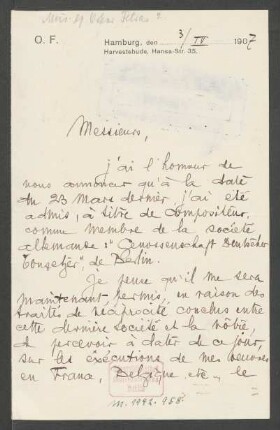 O. F.
Hamburg, den 3/IV 1907
Harvestehude, Hansa-Str. 35.
Messieurs,
j'ai l'honneur de
vous annoncer qu'à la date
du 23 Mars dernier j'ai été
admis, à titre de compositeur,
comme membre de la société
allemande "Genossenschaft Deutscher
Tonsetzer", de Berlin.
Je pense qu'il me sera
maintenant permis, en raison des
traités de réciprocité conclus entre
cette dernière société et la vôtre,
de percevoir à dater de ce jour,
sur les exécutions de mes oeuvres
en France, Belgique etc., le
M. 1992. 958